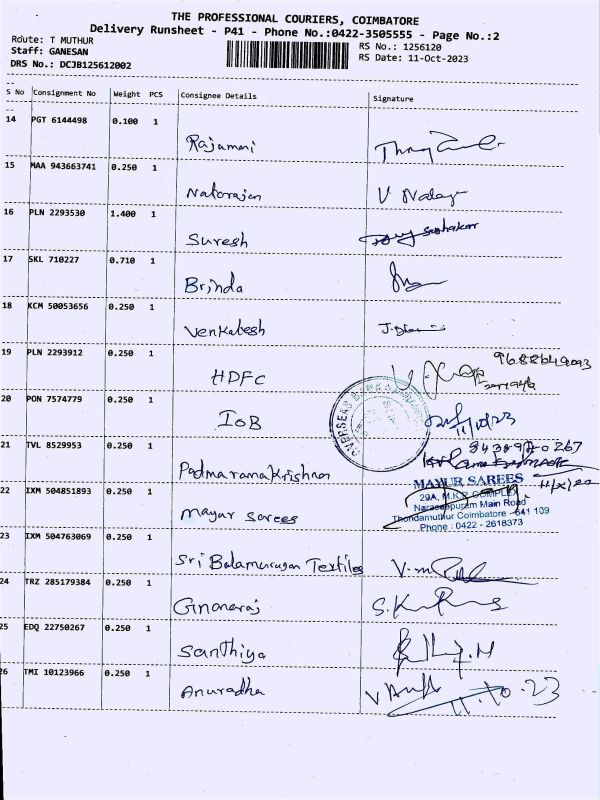 THE PROFESSIONAL COURIERS, COIMBATORE
Delivery Runsheet - P41 - Phone No.:0422-3505555 - Page No.:2
Route: T MUTHUR
RS No.: 1256120
Staff: GANESAN
RS Date: 11-Oct-2023
DRS No.: DCJB125612002
S No Consignment No Weight PCS Consignee Details Signature
14 PGT 6144498 0.100 1
Rajamani
15 MAA 943663741 0.250 1
Natarajan
16 PLN 2293530 1.400 1
Suresh
17 SKL 710227 0.710 1
Brinda
18 KCM 50053656 0.250 1
Venkatesh
19 PLN 2293912 0.250 1
HDFC
20 PON 7574779 0.250 1
IOB 11/10/23
21 TVL 8529953 0.250 1
Padmaramakrishnan
22 IXM 504851893 0.250 1
Mayur Sarees
MAYUR SAREES
29A, M.K.P. COMPLEX
Naraseepuram Main Road
Thondamuthur Coimbatore - 641 109
Phone : 0422 - 2618373
23 IXM 504763069 0.250 1
Sri Balamurugan Textiles
24 TRZ 285179384 0.250 1
Gnanaraj
25 EDQ 22750267 0.250 1
Santhiya
26 TMI 10123966 0.250 1
Anuradha 11.10.23